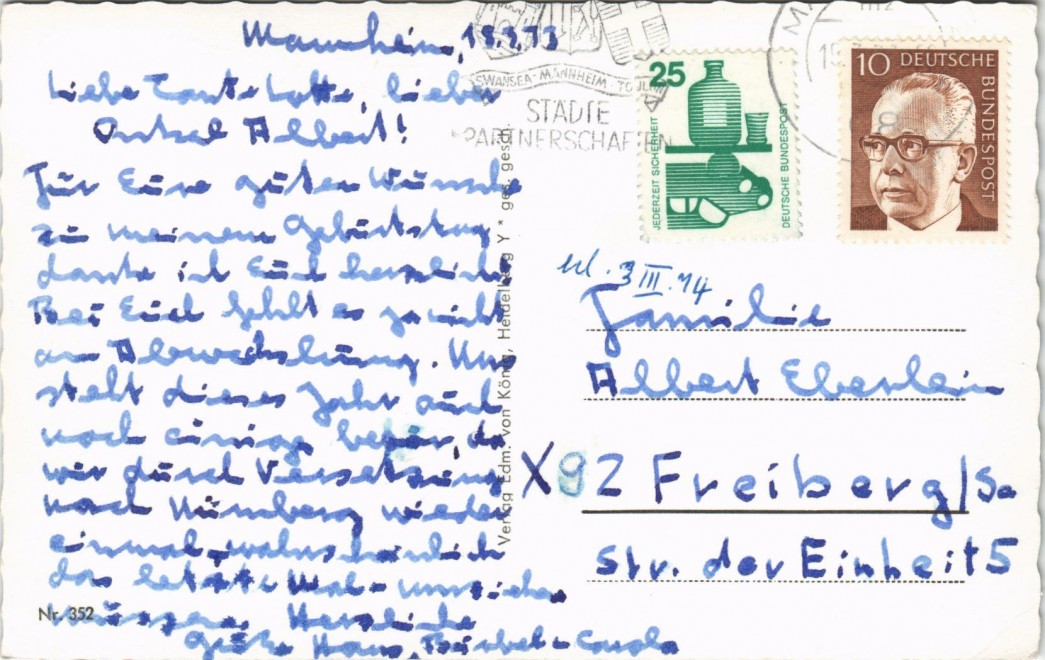 Mannheim, 18.2.73
Liebe Tante Lotte, lieber
Onkel Albert!
Für Eure guten Wünsche
zu meinem Geburtstag
danke ich Euch herzlich!
Bei Euch fehlt es ja nicht
an Abwechslung. Uns
steht dieses Jahr auch
noch einiges bevor, da
wir durch Versetzung
nach Nürnberg wieder
einmal, wahrscheinlich
das letzte Mal umziehen
müssen. Herzliche
Grüße Hans, Bärbel + Carola
Nr. 352
Verlag Edm. von König, Heidelberg Y * ges. gesch.
SWANSEA · MANNHEIM · TOULON
STÄDTE
PARTNERSCHAFTEN
25
JEDERZEIT SICHERHEIT
DEUTSCHE BUNDESPOST
10 DEUTSCHE
BUNDESPOST
3 III. 74
Familie
Albert Eberlein
X92 Freiberg/Sa
Str. der Einheit 5